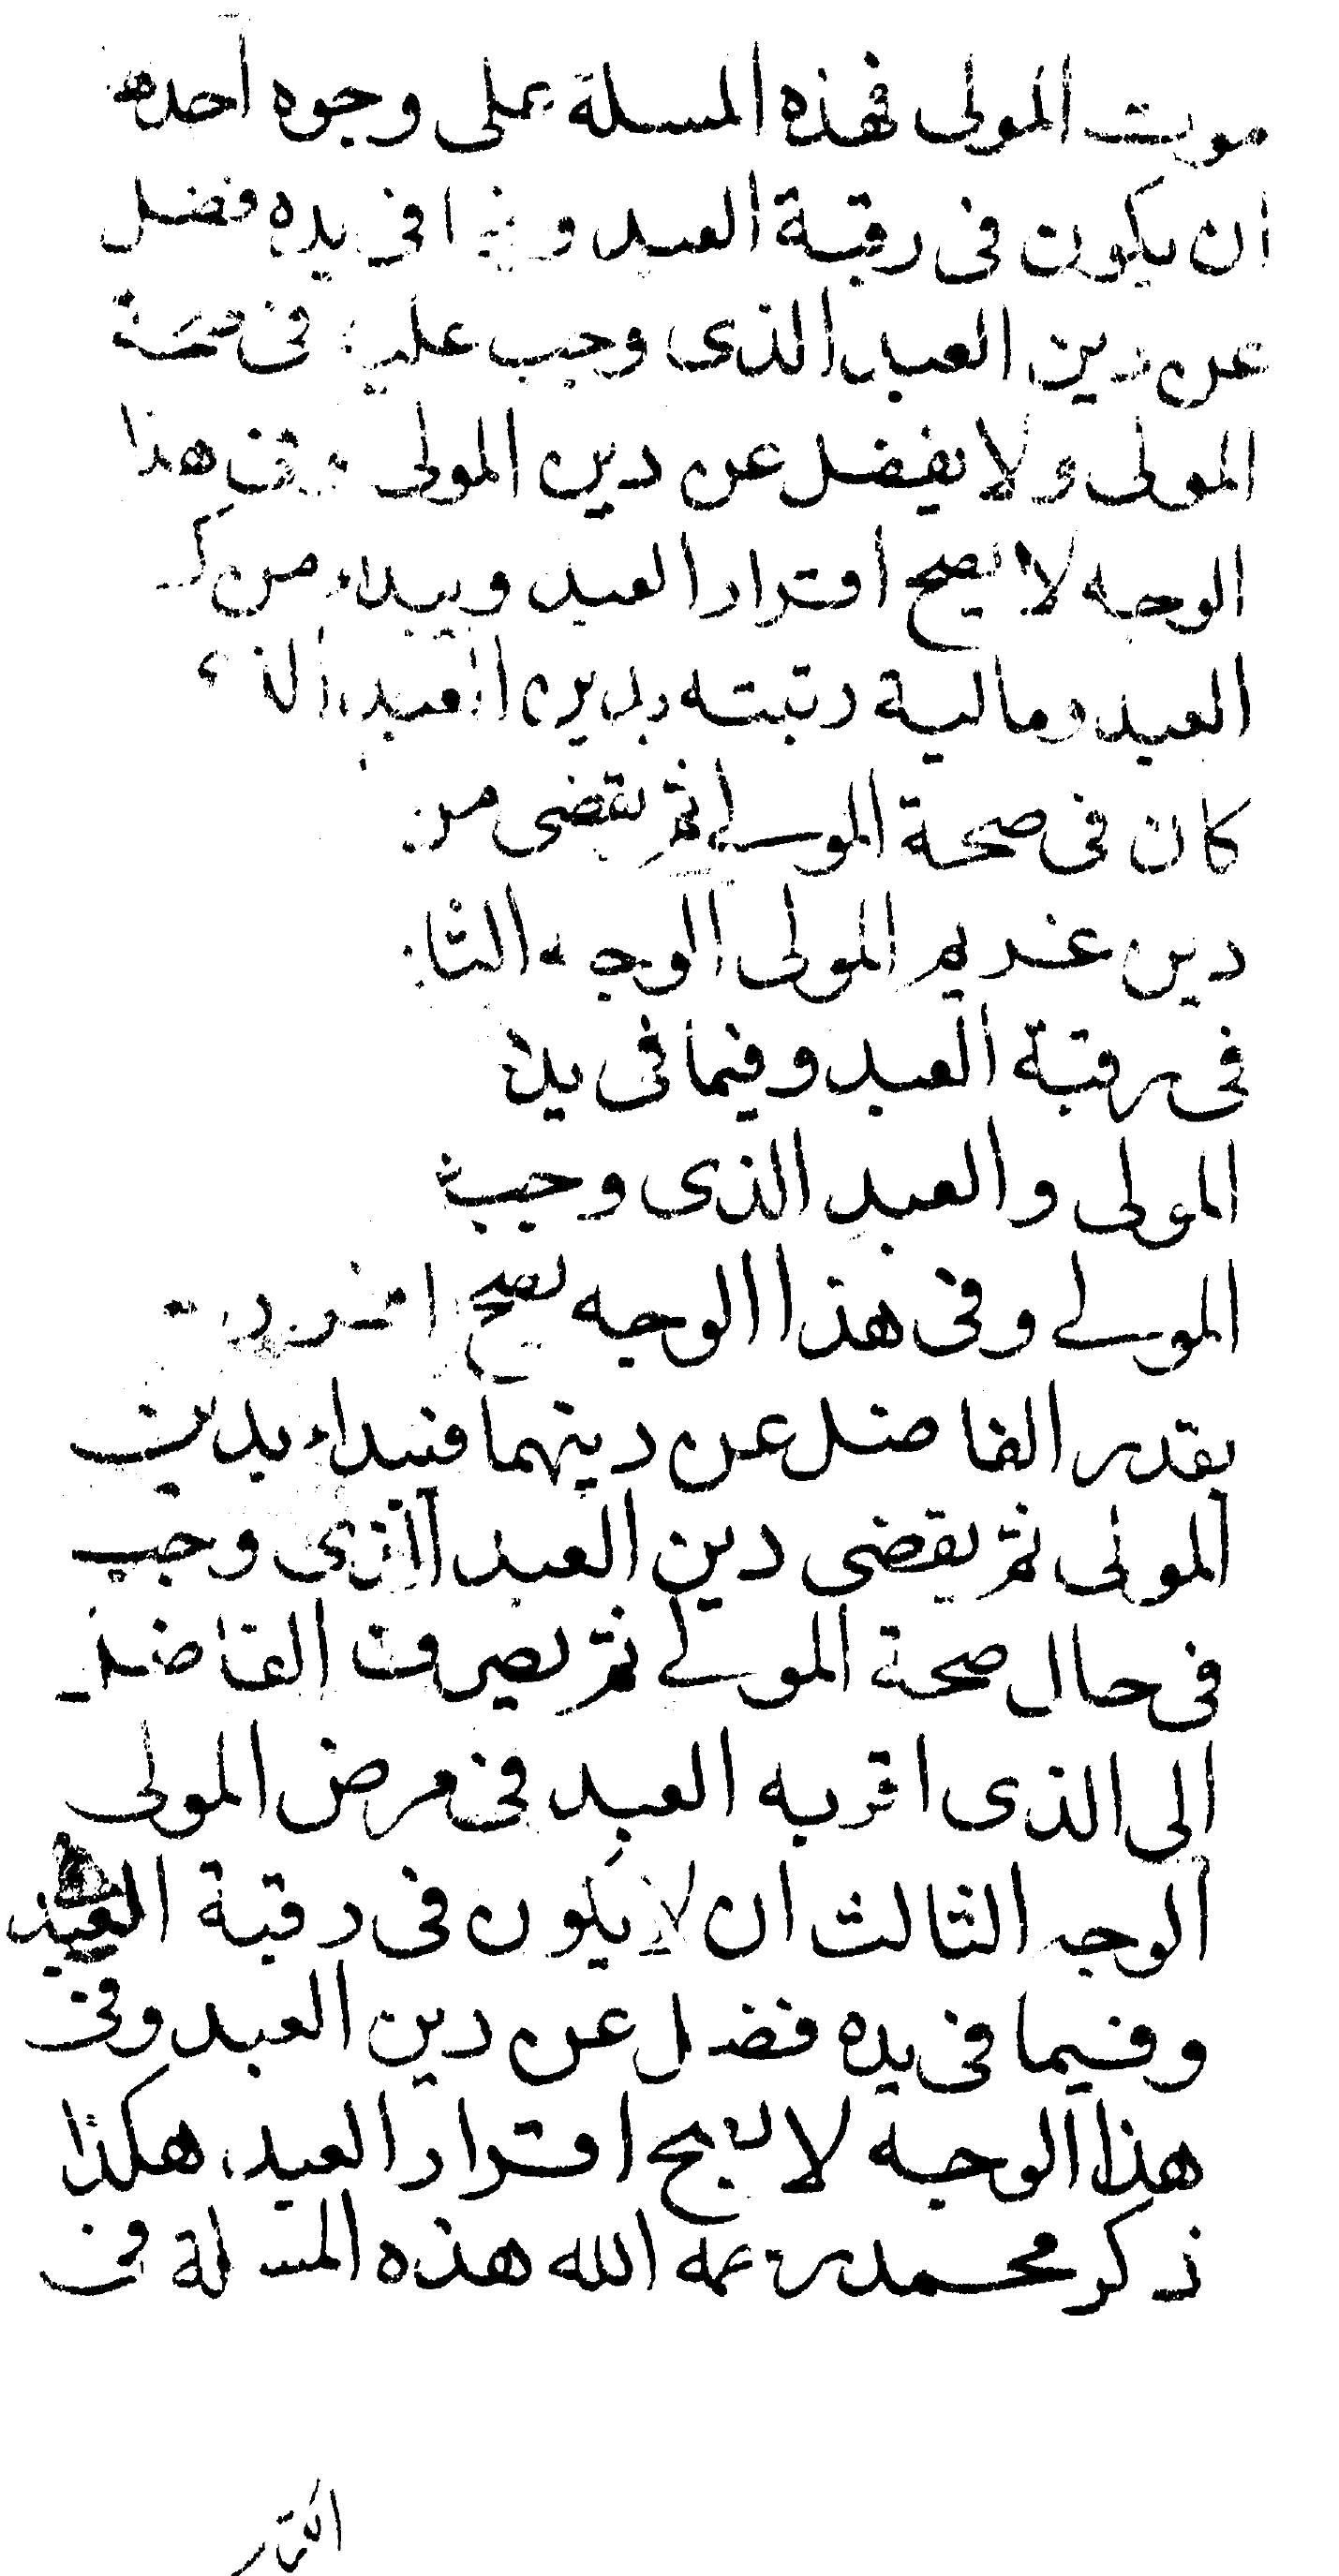 موت المولى فهذه المسلة على وجوه احدها
ان يكون في رقبة العبد وفيما في يده فضل
عن دين العبد الذى وجب عليه في صحة
المولى ولا يفضل عن دين المولى وفي هذا
الوجه لا يصح اقرار العبد ويبداء من
العبد ومالية رقبته بدين العبد الذى
كان في صحة المولى ثم يقضى من
دين غريم المولى الوجه الثا
في رقبة العبد وفيما في يده
المولى والعبد الذى وجب
المولى وفي هذا الوجه يصح
بقدر الفاضل عن دينهما فيبداء بدين
المولى ثم يقضى دين العبد الذى وجب
في حال صحة المولى ثم يصرف الفاضل
الى الذى اقر به العبد في مرض المولى
الوجه الثالث ان لا يكون في رقبة العبد
وفيما في يده فضل عن دين العبد وفي
هذا الوجه لا يصح اقرار العبد هكذا
ذكر محمد رحمه الله هذه المسلة في